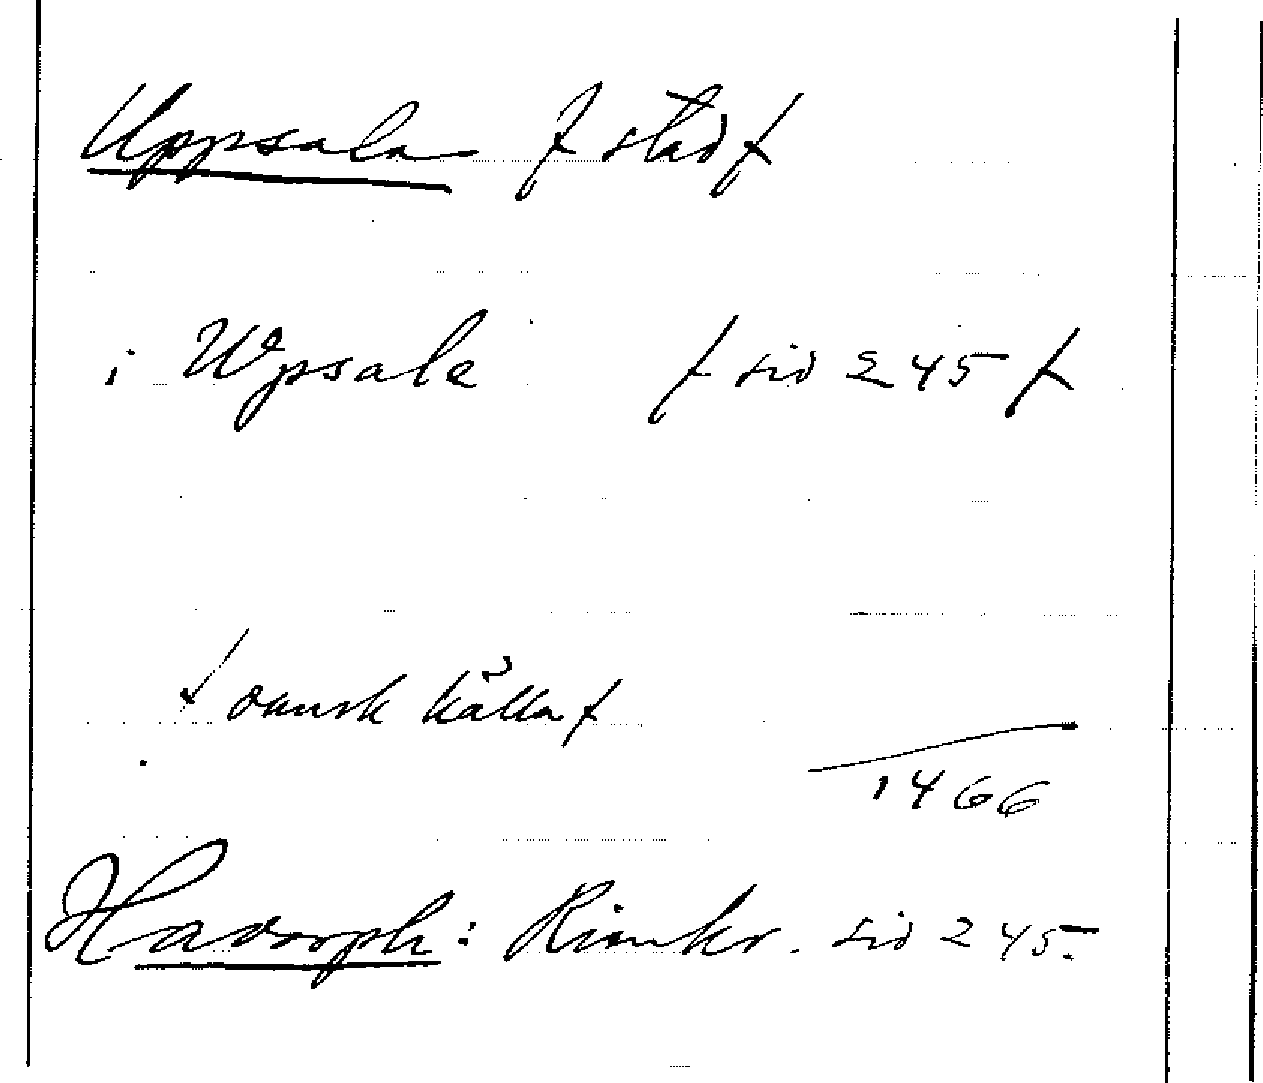 Uppsala / stad /
i Wpsale / sid 245 /
/ dansk källa /
1466
Hadorph: Rimkr. sid 245.